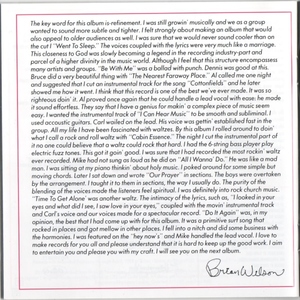 The key word for this album is refinement. I was still growin' musically and we as a group
wanted to sound more subtle and tighter. I felt strongly about making an album that would
also appeal to older audiences as well. I was sure that we would never sound cooler than on
the cut I "Went To Sleep." The voices coupled with the lyrics were very much like a marriage.
This closeness to God was slowly becoming a legend in the recording industry-part and
parcel of a higher divinity in the music world. Although I feel that this structure encompasses
many artists and groups. "Be With Me" was a ballad with punch. Dennis was good at this.
Bruce did a very beautiful thing with "The Nearest Faraway Place." Al called me one night
and suggested that I cut an instrumental track for the song "Cottonfields" and he later
showed me how it went. I think that this record is one of the best we've ever made. It was so
righteous doin' it. Al proved once again that he could handle a lead vocal with ease: he made
it sound effortless. They say that I have a genius for makin' a complex piece of music seem
easy. I wanted the instrumental track of "I Can Hear Music" to be smooth and subliminal. I
used accoustic guitars. Carl wailed on the lead. His voice was gettin' established fast in the
group. All my life I have been fascinated with waltzes. By this album I rolled around to doin'
what I call a rock and roll waltz with "Cabin Essence." The night I cut the instrumental part of
it no one could believe that a waltz could rock that hard. I had the 6-string bass player play
electric fuzz tones. This got it goin' good. I was sure that I had recorded the most rockin' waltz
ever recorded. Mike had not sung as loud as he did on "All I Wanna' Do." He was like a mad
man. I was sitting at my piano thinkin' about holy music. I poked around for some simple but
moving chords. Later I sat down and wrote "Our Prayer" in sections. The boys were overtaken
by the arrangement. I taught it to them in sections, the way I usually do. The purity of the
blending of the voices made the listeners feel spiritual. I was definitely into rock church music.
"Time To Get Alone" was another waltz. The intimacy of the lyrics, such as, "I looked in your
eyes and what did I see, I saw love in your eyes," coupled with the movin' instrumental track
and Carl's voice and our voices made for a spectacular record. "Do It Again" was, in my
opinion, the best that I had come up with for this album. It was a primitive surf song that
rocked in places and got mellow in other places. I fell into a nitch and did some business with
the harmonies. I was featured on the "hey now's" and Mike handled the lead vocal. I love to
make records for you all and please understand that it is hard to keep up the good work. I aim
to entertain you and please you with my craft. I will see you on the next album.
Brian Wilson